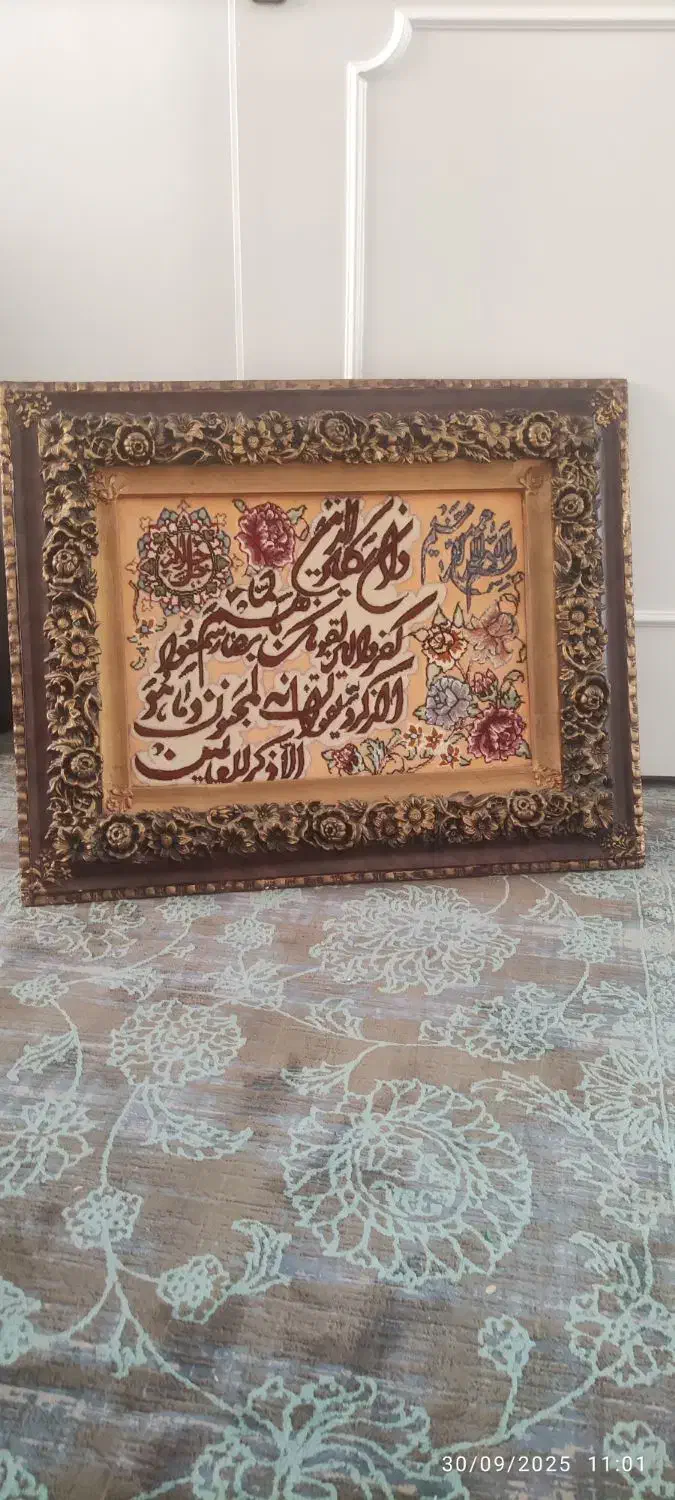 بسم الله الرحمن الرحیم
وان یکاد الذین
کفروا لیزلقونک بابصارهم لما سمعوا
الذکر و یقولون انه لمجنون و ما هو
الا ذکر للعالمین
30/09/2025 11:01